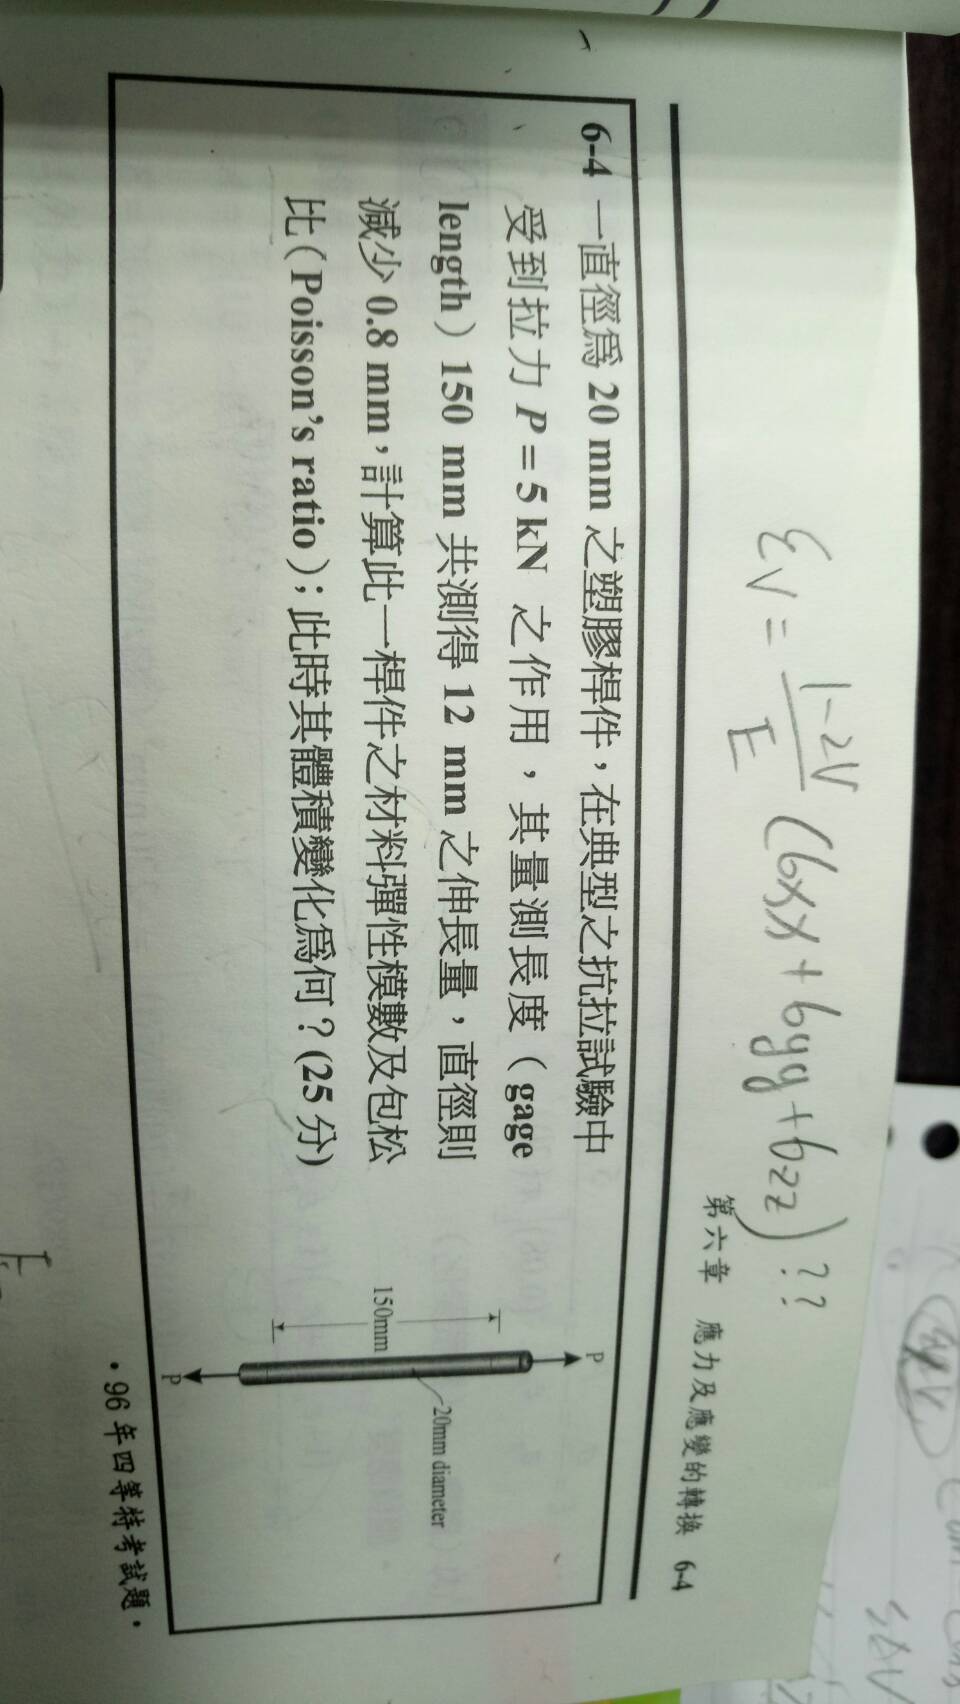 εV = 1-2ν / E (σxx + σyy + σzz) ??
第六章 應力及應變的轉換 6-4
6-4 一直徑爲 20 mm 之塑膠桿件，在典型之抗拉試驗中
受到拉力 P = 5 kN 之作用，其量測長度（gage
length）150 mm 共測得 12 mm 之伸長量，直徑則
減少 0.8 mm，計算此一桿件之材料彈性模數及包松
比（Poisson's ratio）；此時其體積變化爲何？(25 分)
P
150mm
20mm diameter
P
·96 年四等特考試題·